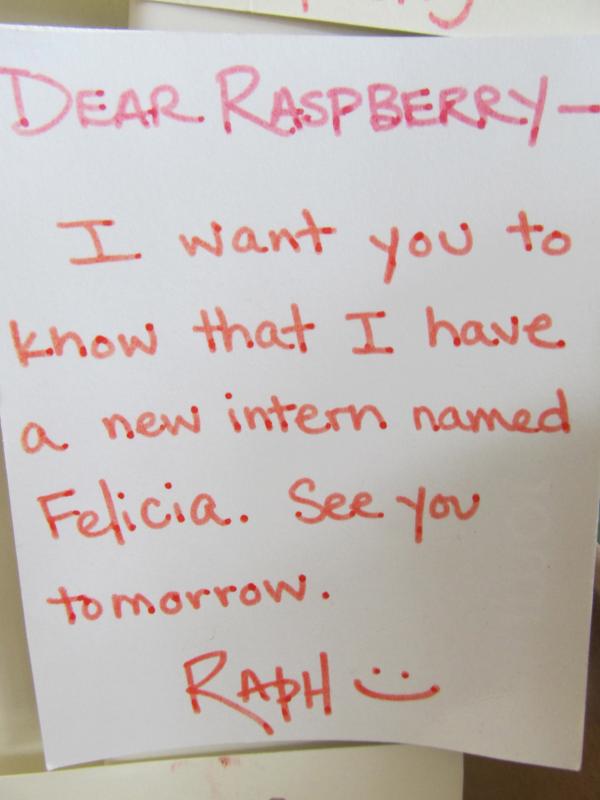 DEAR RASPBERRY—
I want you to
know that I have
a new intern named
Felicia. See you
tomorrow.
RAPH :)